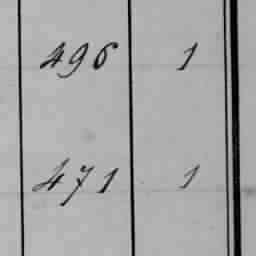 496 1
471 1